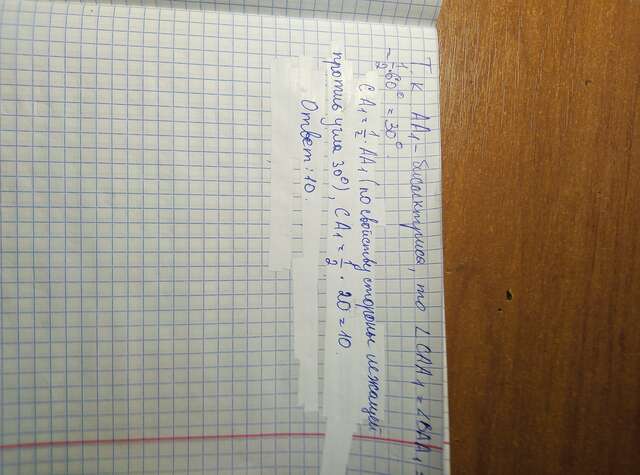 Т. к AA₁ - биссектриса, то ∠CAA₁ = ∠BAA₁ =
= 1/2 60° = 30°.
CA₁ = 1/2 · AA₁ (по свойству стороны лежащей
против угла 30°), CA₁ = 1/2 · 20 = 10.
Ответ: 10.